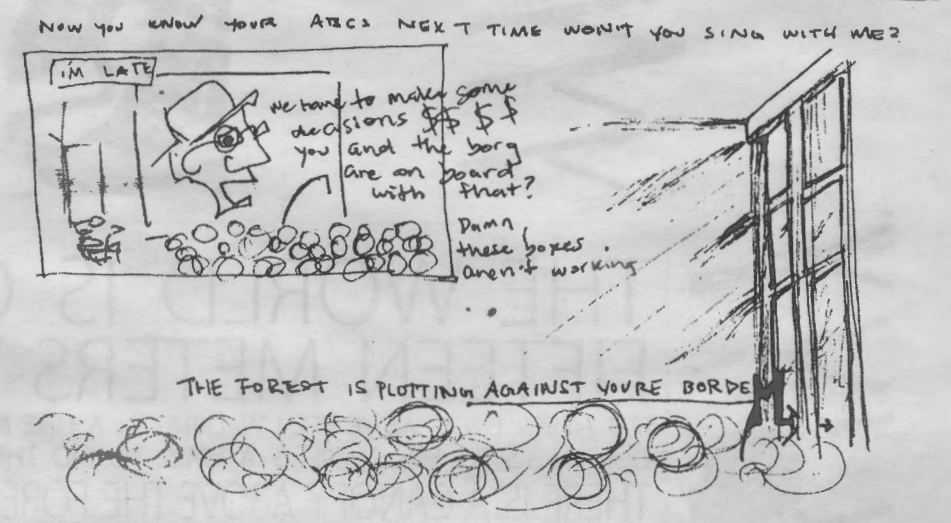 NOW YOU KNOW YOUR ABCs NEXT TIME WON'T YOU SING WITH ME?
I'M LATE
we have to make some
decisions $$ $ $
you and the borg
are on board
with that?
Damn
these boxes
aren't working
THE FOREST IS PLOTTING AGAINST YOURE BORDE
THE WORLD IS
FIFTEEN METERS
ABOVE THE FORE